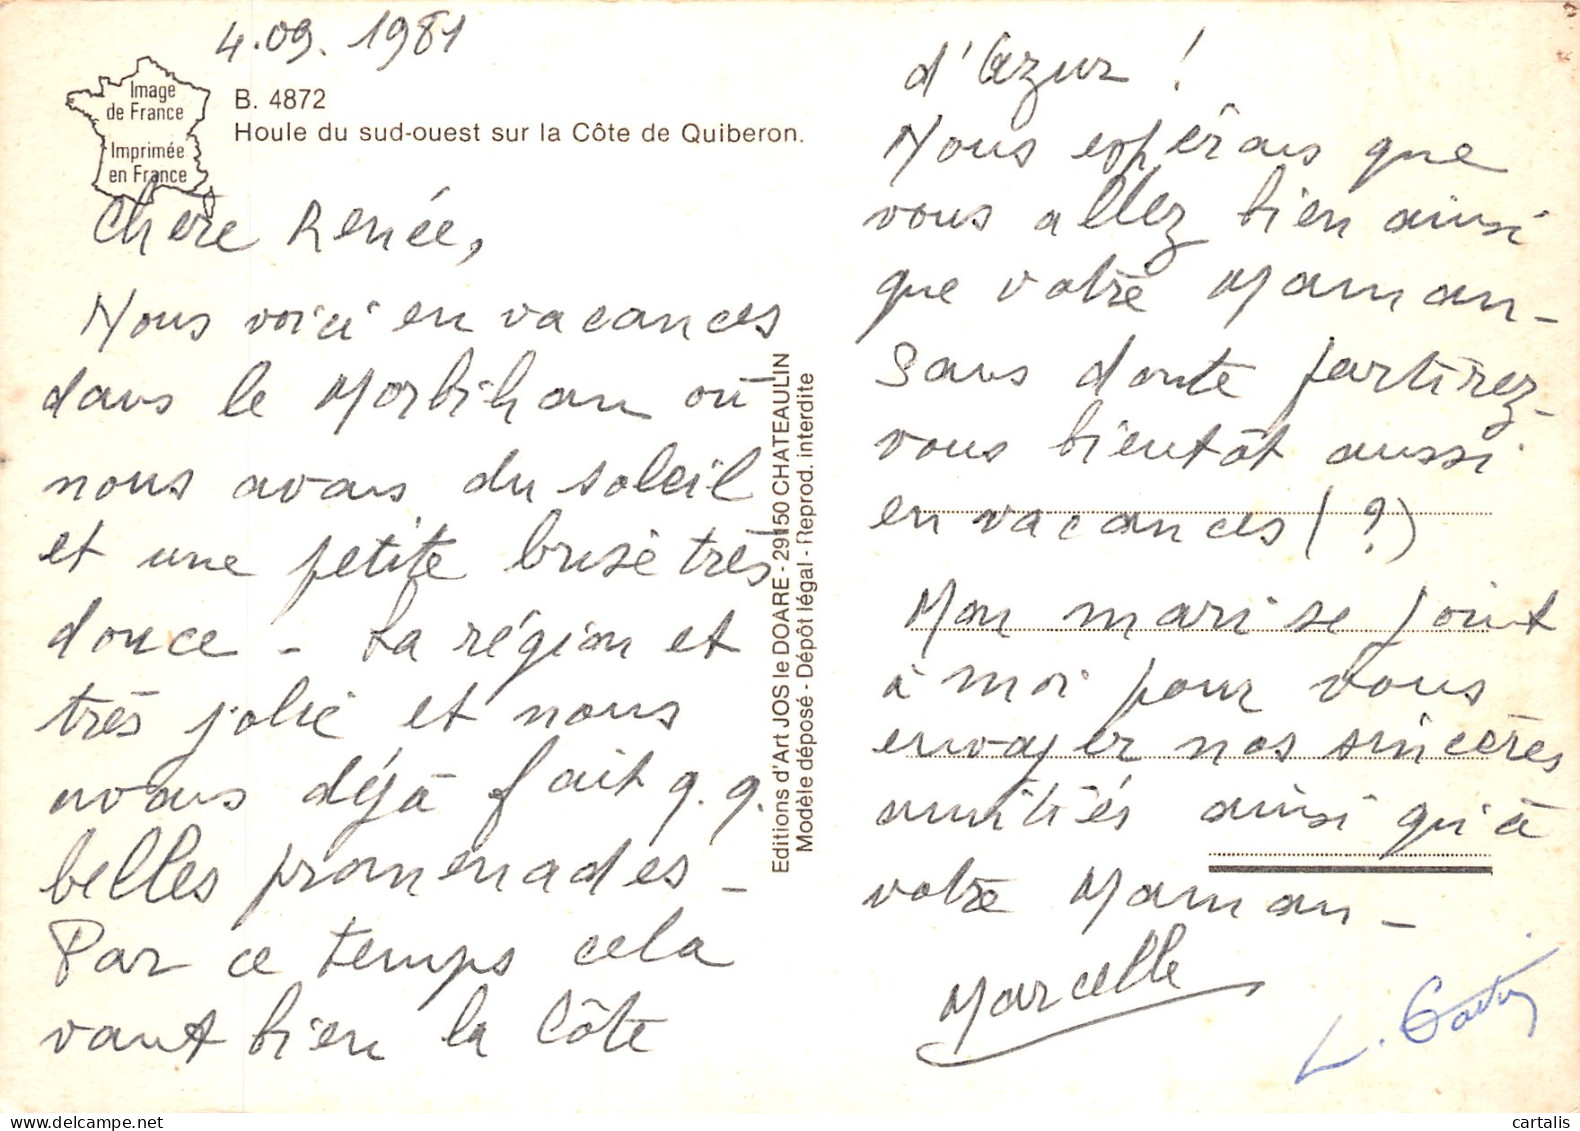 4.09.1981
Image
de France
Imprimée
en France
B. 4872
Houle du sud-ouest sur la Côte de Quiberon.
Chère Renée,
Nous voici en vacances
dans le Morbihan où
nous avons du soleil
et une petite brise très
douce - La région et
très jolie et nous
avons déjà fait q.q.
belles promenades -
Par ce temps cela
vaut bien la Côte
Editions d'Art JOS le DOARE - 29150 CHATEAULIN
Modèle déposé - Dépôt légal - Reprod. interdite
d'Azur !
Nous espérons que
vous allez bien ainsi
que votre Maman -
Sans doute partirez-
vous bientôt aussi
en vacances (?)
Mon mari se joint
à moi pour vous
envoyer nos sincères
amitiés ainsi qu'à
votre Maman -
Marcelle
L.
cartalis